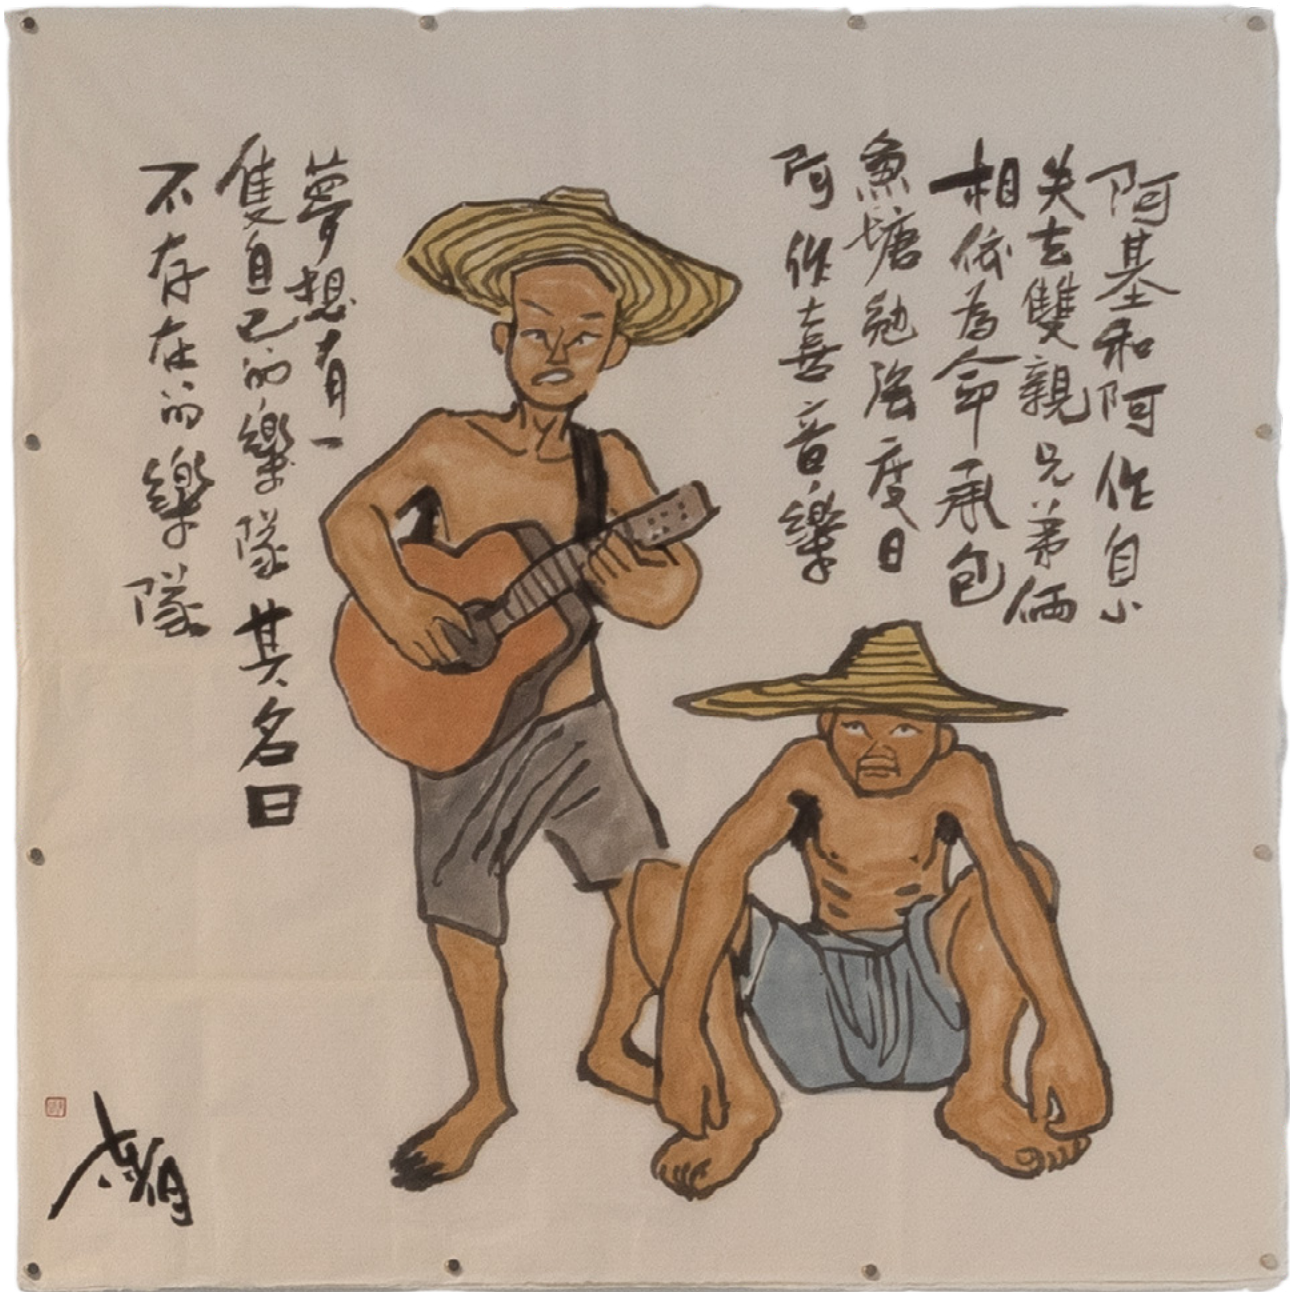 阿基和阿作自小
失去雙親兄弟倆
相依為命承包
魚塘勉強度日
阿作喜音樂
夢想有一
隻自己的樂隊其名曰
不存在的樂隊